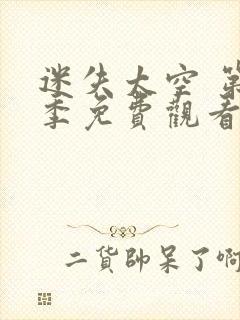 迷失太空 第
季免費觀看
二貨帥呆了啊